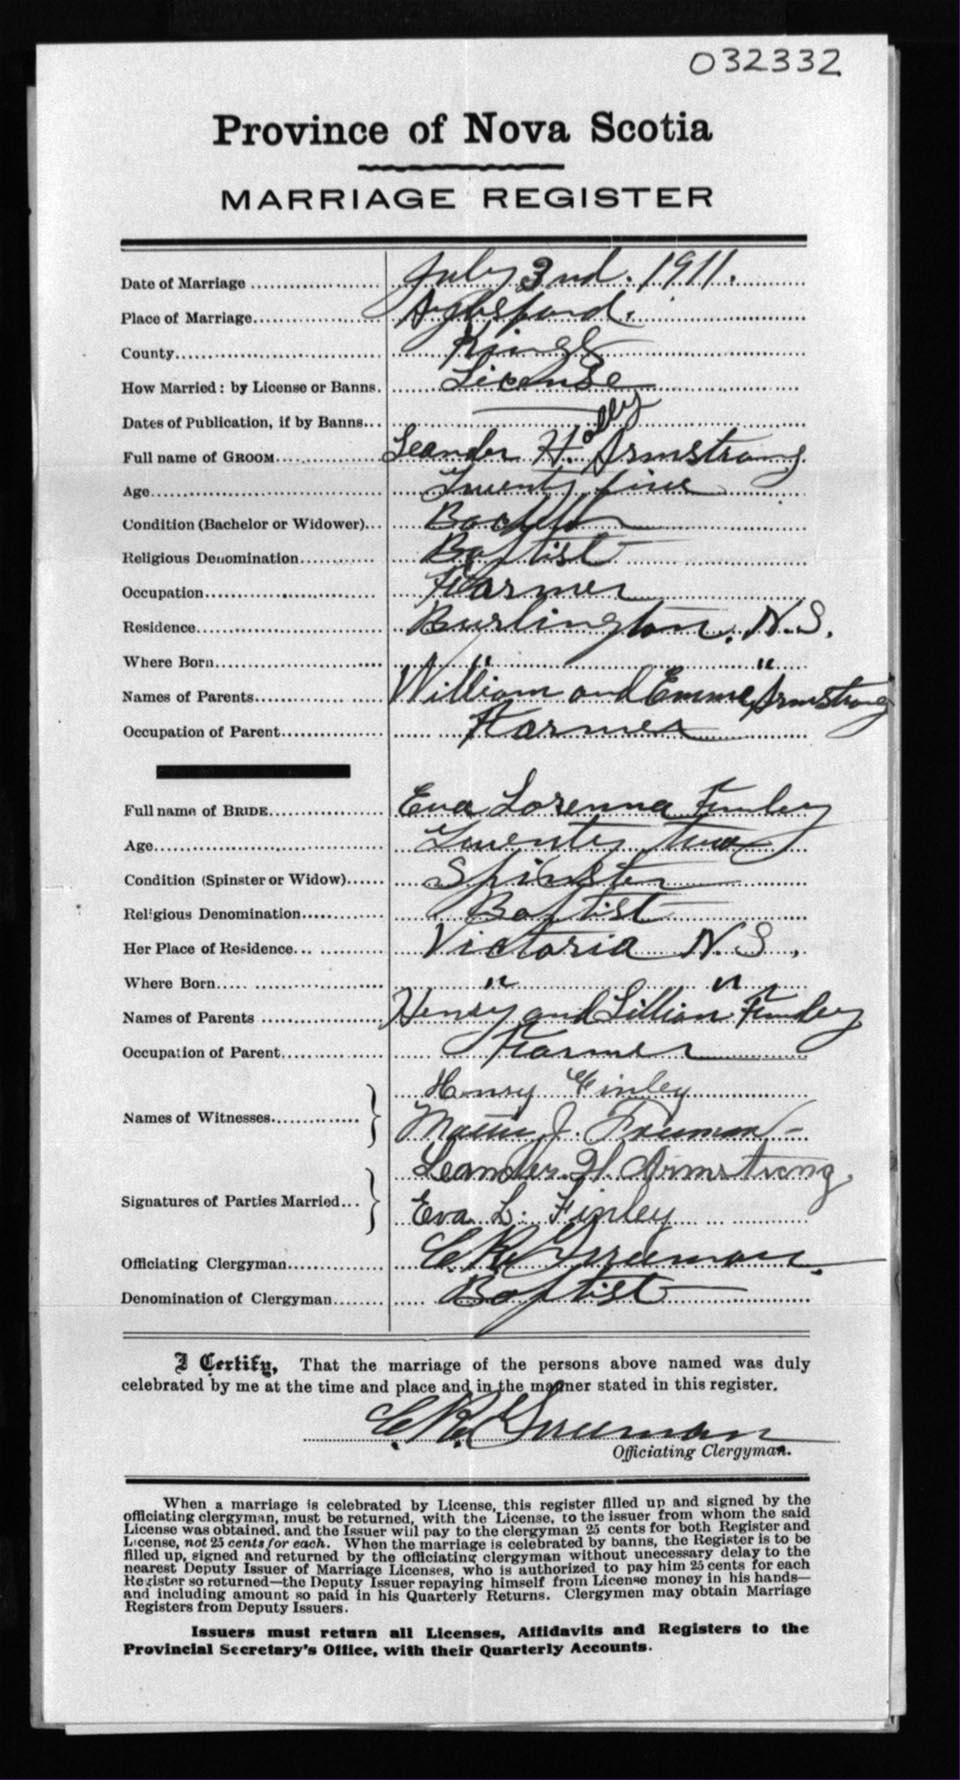 032332
Province of Nova Scotia
MARRIAGE REGISTER
Date of Marriage July 3nd. 1911.
Place of Marriage Aylesford.
County Kings
How Married: by License or Banns. License
Dates of Publication, if by Banns...
Full name of GROOM Leander Holley Armstrong
Age Twenty five
Condition (Bachelor or Widower)... Bachelor
Religious Denomination Baptist
Occupation Farmer
Residence Burlington. N.S.
Where Born " "
Names of Parents William and Emma Armstrong
Occupation of Parent Farmer
Full name of BRIDE Eva Lorenna Finley
Age Twenty two
Condition (Spinster or Widow) Spinster
Religious Denomination Baptist
Her Place of Residence Victoria N.S.
Where Born " "
Names of Parents Henry and Lillian Finley
Occupation of Parent Farmer
Henry Finley
Names of Witnesses Mattie J. Freeman
Leander H. Armstrong
Signatures of Parties Married
Eva L. Finley
Officiating Clergyman Freeman.
Denomination of Clergyman Baptist
I Certify, That the marriage of the persons above named was duly
celebrated by me at the time and place and in the manner stated in this register.
Freeman
Officiating Clergyman.
When a marriage is celebrated by License, this register filled up and signed by the
officiating clergyman, must be returned, with the License, to the issuer from whom the said
License was obtained, and the Issuer will pay to the clergyman 25 cents for both Register and
License, not 25 cents for each. When the marriage is celebrated by banns, the Register is to be
filled up, signed and returned by the officiating clergyman without unnecessary delay to the
nearest Deputy Issuer of Marriage Licenses, who is authorized to pay him 25 cents for each
Register so returned—the Deputy Issuer repaying himself from License money in his hands—
and including amount so paid in his Quarterly Returns. Clergymen may obtain Marriage
Registers from Deputy Issuers.
Issuers must return all Licenses, Affidavits and Registers to the
Provincial Secretary's Office, with their Quarterly Accounts.